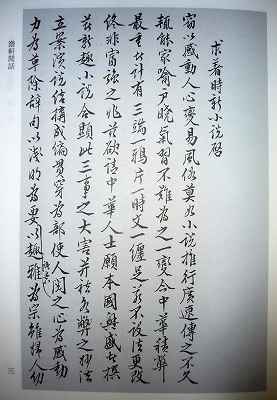 求着時新小說啓
竊以感動人心變易風俗莫如小說推行廣速傳之不久
輒能家喻戶曉氣習不難為之一變今中華積弊
最重大計有三端一鴉片一時文一纏足若不設法更改
終非富強之兆茲欲請中華人士願本國興盛者撰
著新趣小說合顯此三事之大害并祛各弊之妙法
立案演說結構成編貫穿為部使人閱之心為感動
力為革除辭句以淺明為要語意以趣雅為宗雖婦人幼
軒閒話